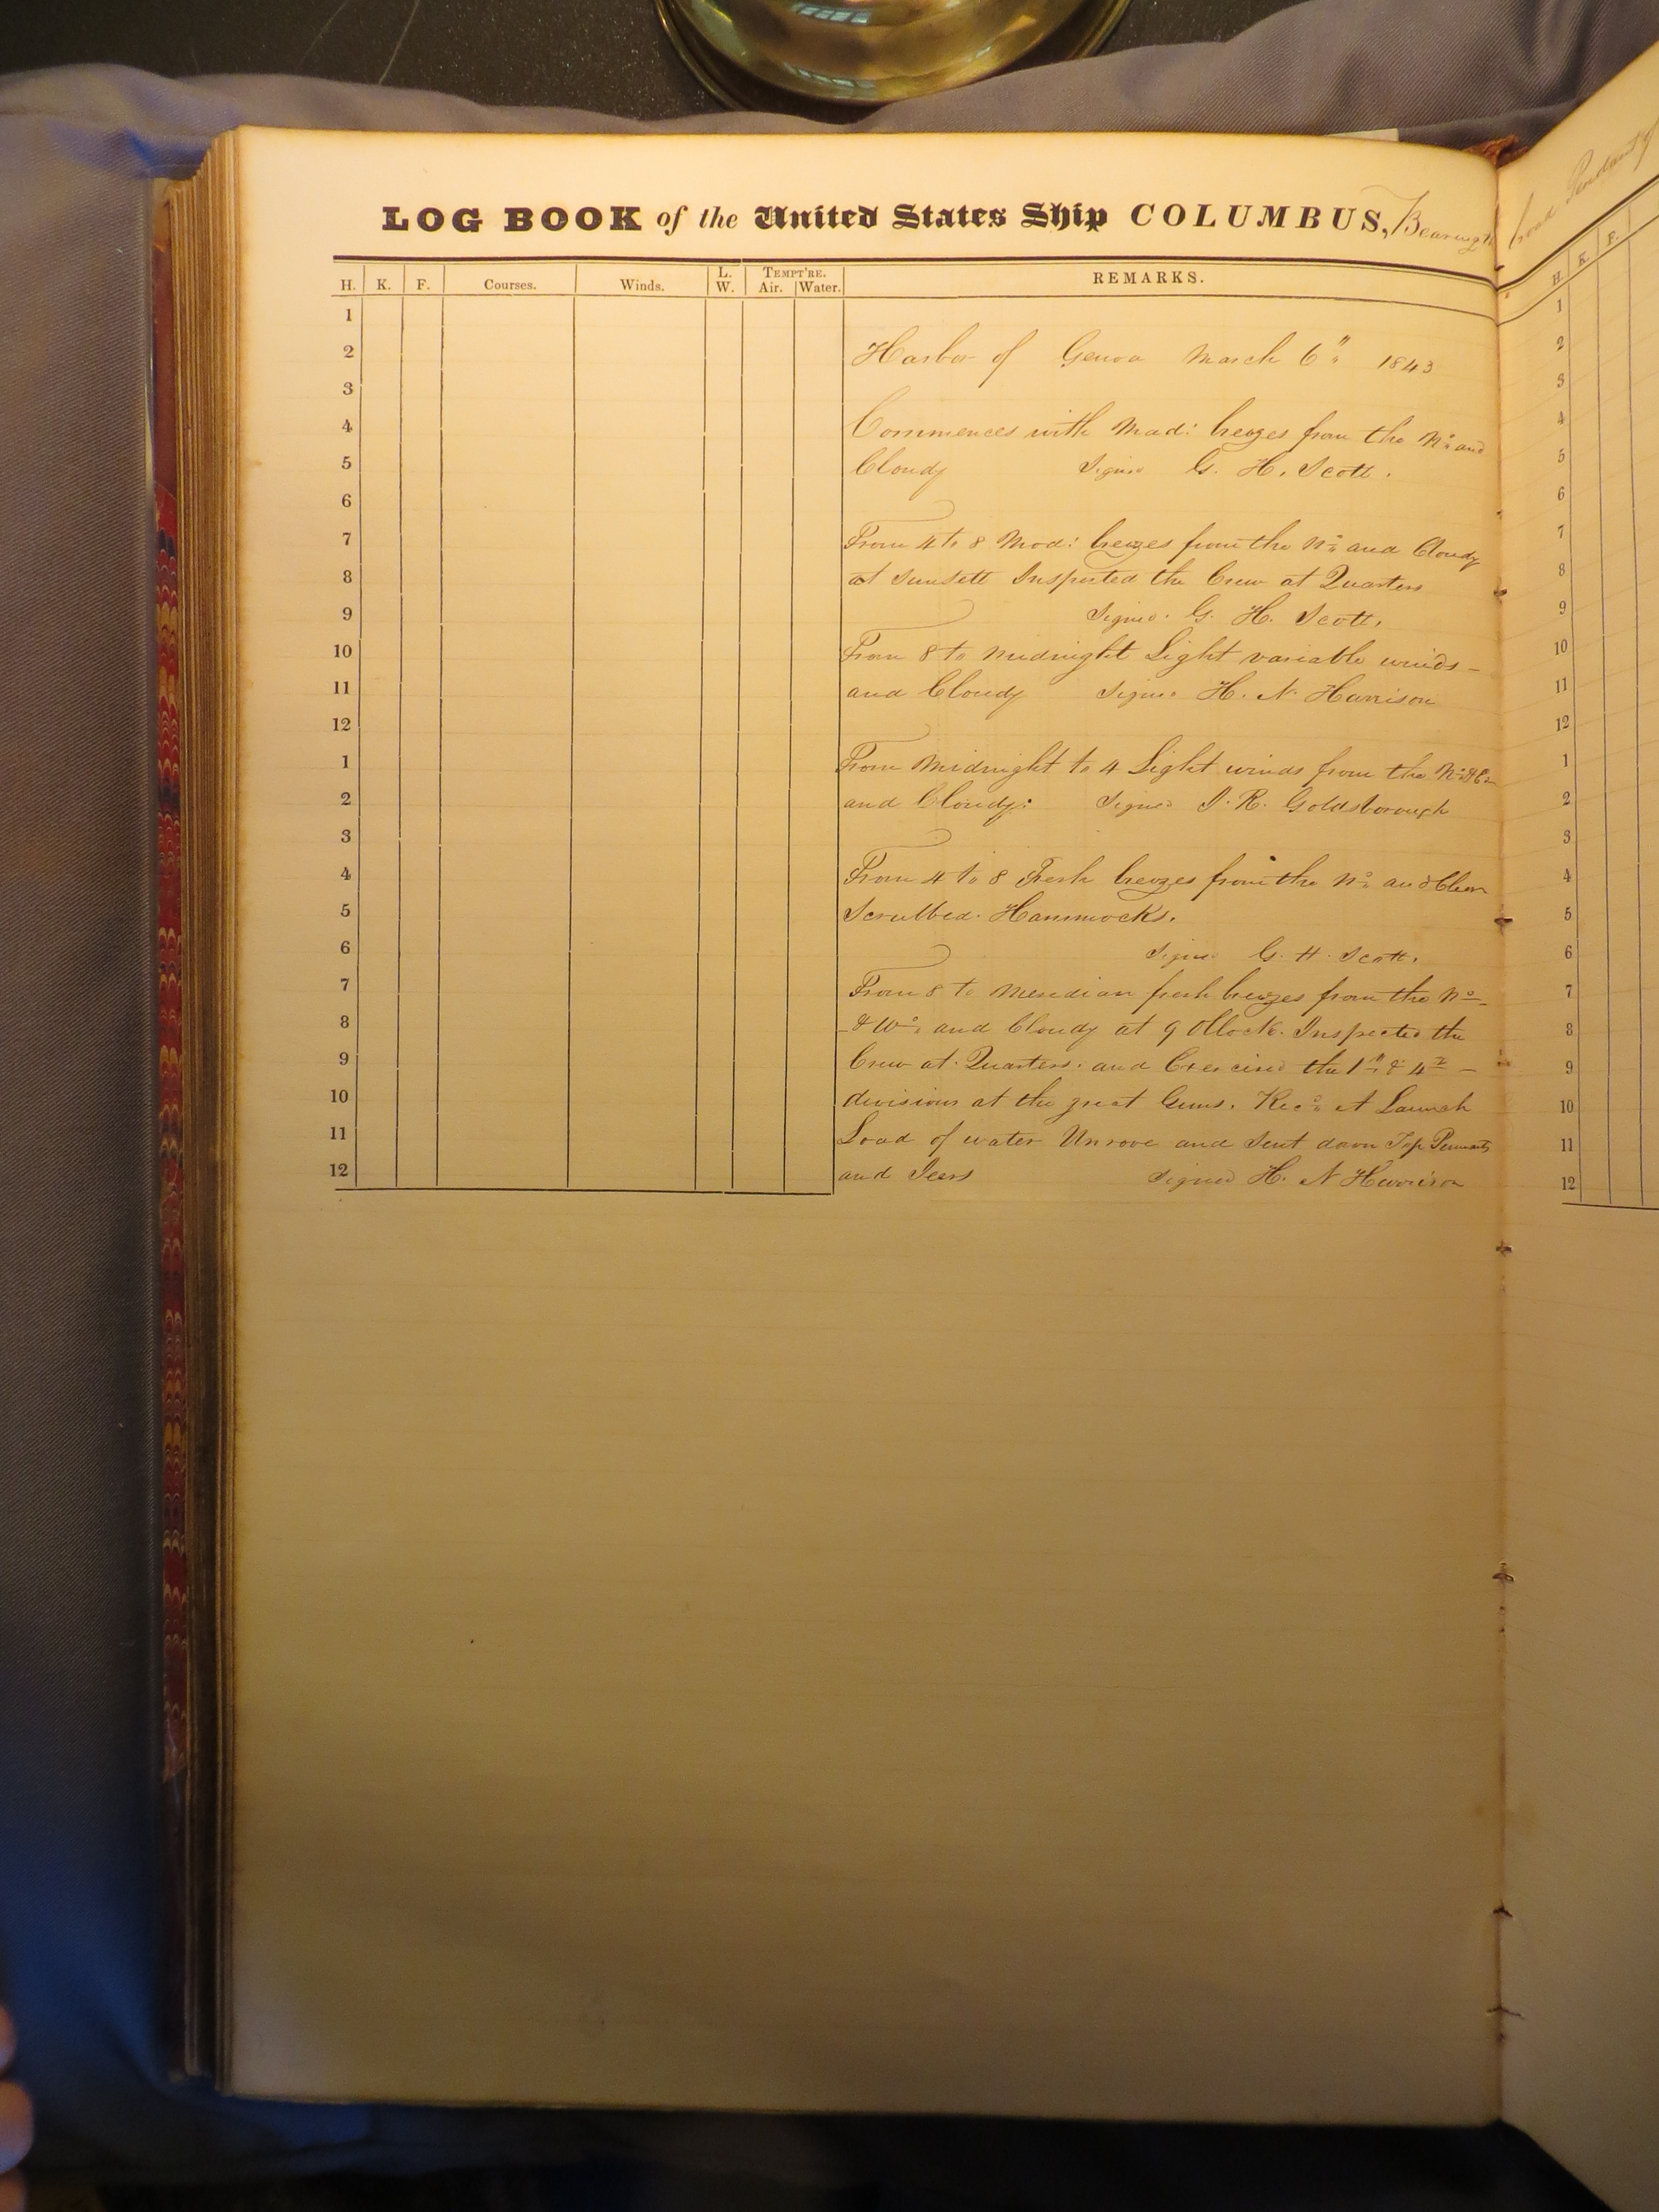 LOG BOOK of the United States Ship COLUMBUS, Bearing the
broad Pendant of
H. K. F. Courses. Winds. L. W. TEMPT'RE. Air. Water. REMARKS.
H. K. F.
1
2 Harbor of Genoa March 6" 1843
3
4 Commences with Mod: breezes from the No: and
5 Cloudy Signed G. H. Scott.
6
7 From 4 to 8 Mod: breezes from the No: and Cloudy
8 at Sunsett Inspected the Crew at Quarters
9 Signed. G. H. Scott.
10 From 8 to Midnight Light variable winds –
11 and Cloudy Signed H. N. Harrison
12
1 From Midnight to 4 Light winds from the No: & Eo:
2 and Cloudy: Signed J. R. Goldsborough
3
4 From 4 to 8 Fresh breezes from the No: and Clear
5 Scrubbed Hammocks.
6 Signed G. H. Scott.
7 From 8 to Meridian fresh breezes from the No: –
8 – & Wo: and Cloudy at 9 OClock. Inspected the
9 Crew at Quarters. and Exercised the 1st & 4th –
10 divisions at the great Guns. Recd: A Launch
11 Load of water Unrove and Sent down Top Pennants
12 and Jeers Signed H. N Harrison
1
2
3
4
5
6
7
8
9
10
11
12
1
2
3
4
5
6
7
8
9
10
11
12